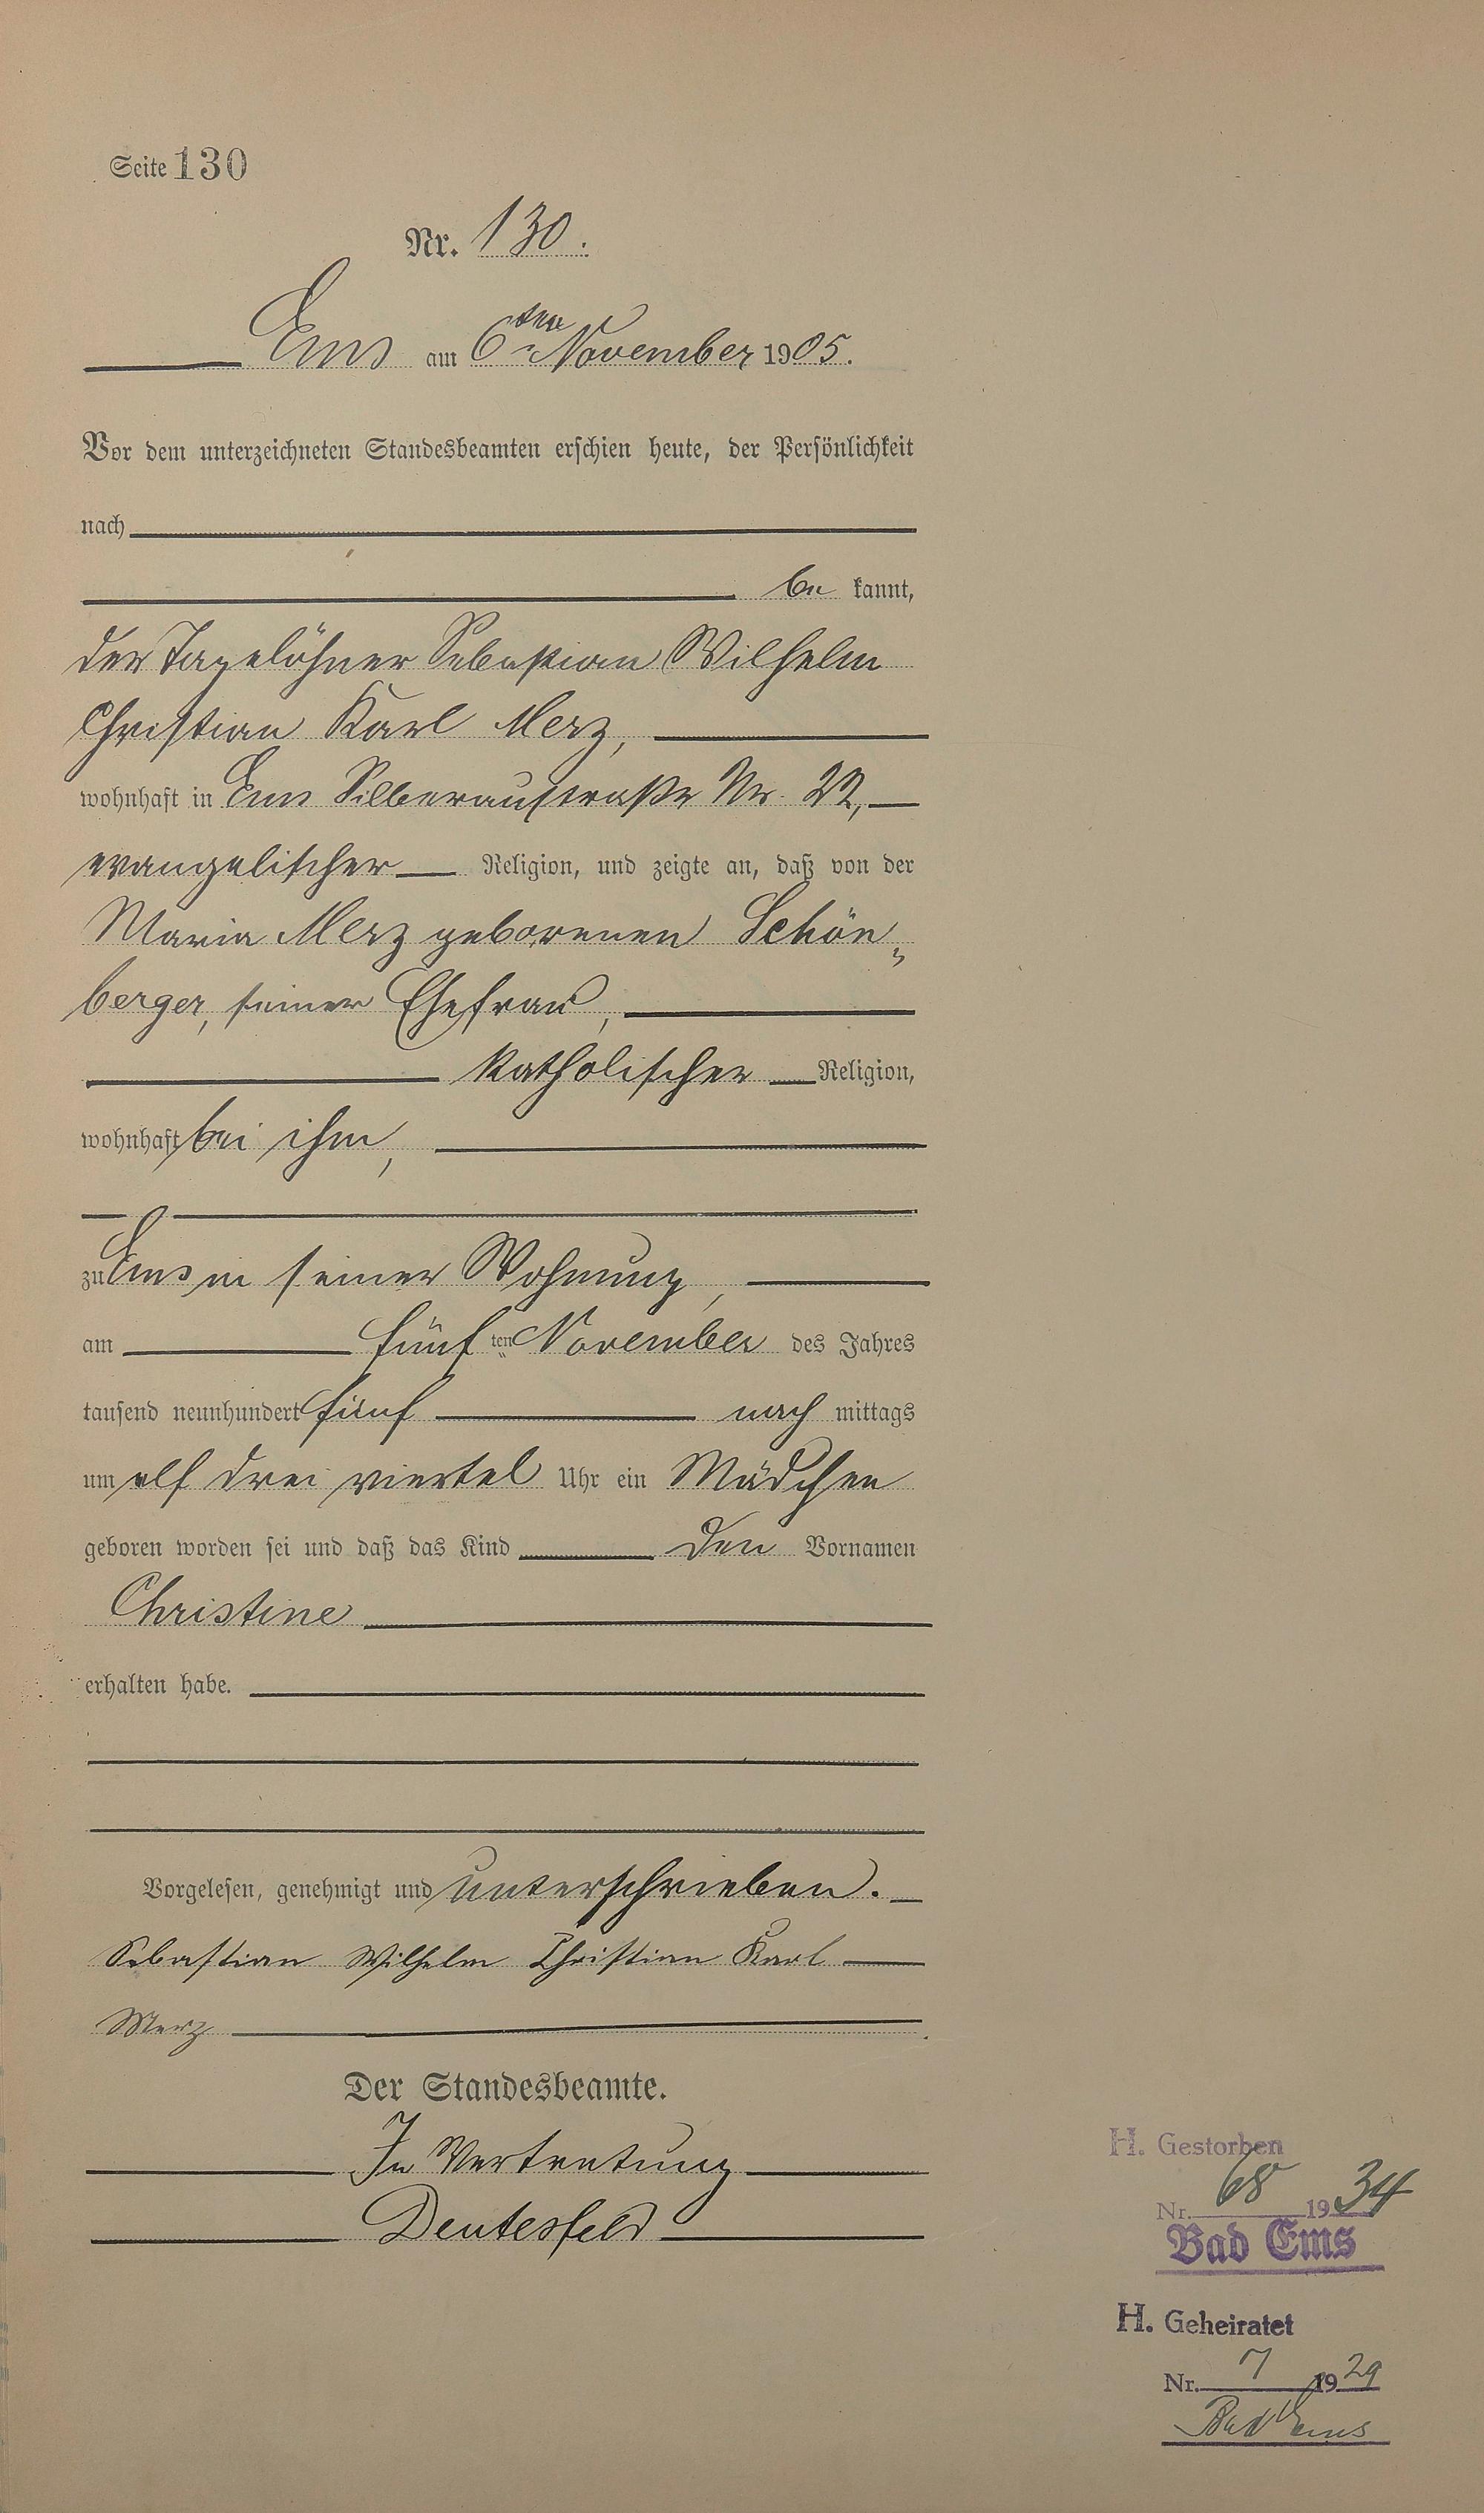 Seite 130
Nr. 130.
Ems am 6ten November 1905.
Vor dem unterzeichneten Standesbeamten erschien heute, der Persönlichkeit
nach
be kannt,
der Tagelöhner Sebastian Wilhelm
Christian Karl Merz,
wohnhaft in Ems Silberaustraße Nr. 22,
evangelischer Religion, und zeigte an, daß von der
Maria Merz geborenen Schön„
berger, seiner Ehefrau,
katholischer Religion,
wohnhaft bei ihm,
zu Ems in seiner Wohnung,
am fünf ten November des Jahres
tausend neunhundert fünf nach mittags
um elf drei viertel Uhr ein Mädchen
geboren worden sei und daß das Kind den Vornamen
Christine
erhalten habe.
Vorgelesen, genehmigt und unterschrieben.
Sebastian Wilhelm Christian Karl
Merz
Der Standesbeamte.
In Vertretung
Deutesfeld
H. Gestorben
Nr. 68 1934
Bad Ems
H. Geheiratet
Nr. 7 1929
Bad Ems